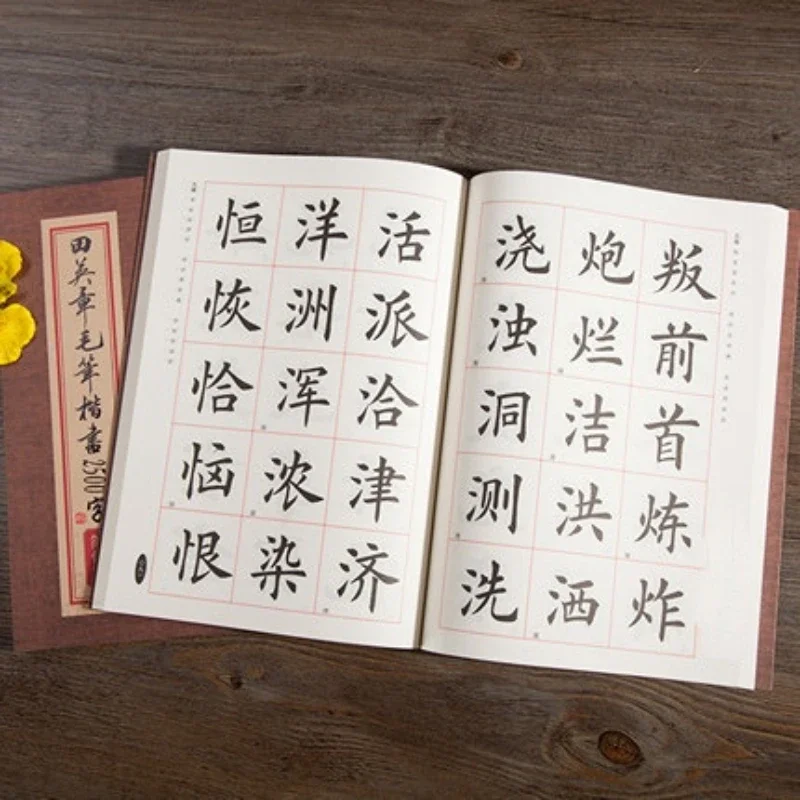 田英章毛筆楷書2500字
叛前首炼炸
炮烂洁洪洒
浇浊洞测洗
活派洽津济
洋洲浑浓染
恒恢恰恼恨